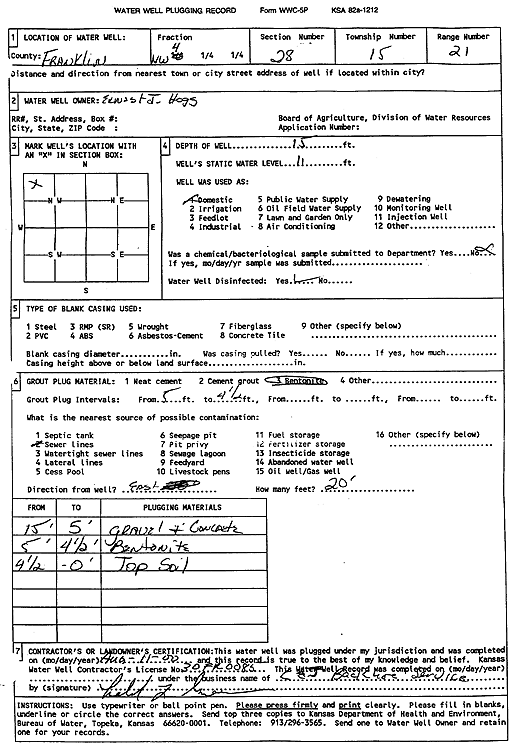 WATER WELL PLUGGING RECORD Form WWC-5P KSA 82a-1212
1 LOCATION OF WATER WELL: Fraction Section Number Township Number Range Number
County: FRANKLIN NW 4 1/4 1/4 1/4 28 15 21
Distance and direction from nearest town or city street address of well if located within city?
2 WATER WELL OWNER: Ernest J. Hogs
RR#, St. Address, Box #: Board of Agriculture, Division of Water Resources
City, State, ZIP Code : Application Number:
3 MARK WELL'S LOCATION WITH AN "X" IN SECTION BOX:
N
X
N W N E
W
S W S E
S
4 DEPTH OF WELL.....15.....ft.
WELL'S STATIC WATER LEVEL...11......ft.
WELL WAS USED AS:
1 Domestic 5 Public Water Supply 9 Dewatering
2 Irrigation 6 Oil Field Water Supply 10 Monitoring Well
3 Feedlot 7 Lawn and Garden Only 11 Injection Well
4 Industrial 8 Air Conditioning 12 Other............
Was a chemical/bacteriological sample submitted to Department? Yes....No.X..
If yes, mo/day/yr sample was submitted.....................
Water Well Disinfected: Yes.....No......
5 TYPE OF BLANK CASING USED:
1 Steel 3 RMP (SR) 5 Wrought 7 Fiberglass 9 Other (specify below)
2 PVC 4 ABS 6 Asbestos-Cement 8 Concrete Tile ..............................
Blank casing diameter..........in. Was casing pulled? Yes...... No...... If yes, how much..........
Casing height above or below land surface......................in.
6 GROUT PLUG MATERIAL: 1 Neat cement 2 Cement grout 3 Bentonite 4 Other....................
Grout Plug Intervals: From..5...ft. to..4½.ft., From......ft. to ......ft., From...... to......ft.
What is the nearest source of possible contamination:
1 Septic tank 6 Seepage pit 11 Fuel storage 16 Other (specify below)
2 Sewer lines 7 Pit privy 12 Fertilizer storage
3 Watertight sewer lines 8 Sewage lagoon 13 Insecticide storage
4 Lateral lines 9 Feedyard 14 Abandoned water well
5 Cess Pool 10 Livestock pens 15 Oil well/Gas well
Direction from well? East How many feet? 20'
FROM TO PLUGGING MATERIALS
15' 5' GRAVEL + CONCRETE
5' 4½' BENTONITE
4½ -0' Top Soil
7 CONTRACTOR'S OR LANDOWNER'S CERTIFICATION: This water well was plugged under my jurisdiction and was completed
on (mo/day/year) Aug-11-00 and this record is true to the best of my knowledge and belief. Kansas
Water Well Contractor's License No. This Water Well Record was completed on (mo/day/year)
under the business name of Backhoe Service
by (signature)
INSTRUCTIONS: Use typewriter or ball point pen. Please press firmly and print clearly. Please fill in blanks,
underline or circle the correct answers. Send top three copies to Kansas Department of Health and Environment,
Bureau of Water, Topeka, Kansas 66620-0001. Telephone: 913/296-3565. Send one to Water Well Owner and retain
one for your records.